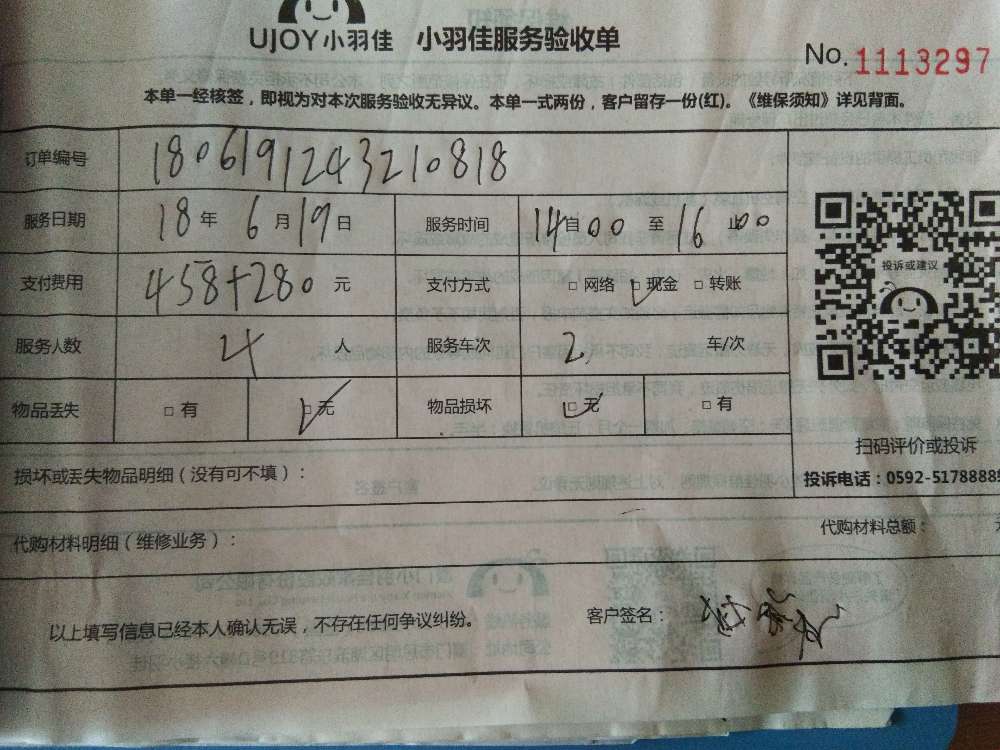 UJOY小羽佳 小羽佳服务验收单
No. 1113297
本单一经核签，即视为对本次服务验收无异议。本单一式两份，客户留存一份(红)。《维保须知》详见背面。
订单编号 1806191243210818
服务日期 18 年 6 月 19 日 服务时间 14 自 00 至 16 止 00
投诉或建议
支付费用 458+280 元 支付方式 □ 网络 □ 现金 □ 转账
服务人数 4 人 服务车次 2 车/次
物品丢失 □ 有 □ 无 物品损坏 □ 无 □ 有
扫码评价或投诉
损坏或丢失物品明细（没有可不填）：
投诉电话：0592-5178888
代购材料明细（维修业务）：
代购材料总额：
以上填写信息已经本人确认无误，不存在任何争议纠纷。
客户签名：